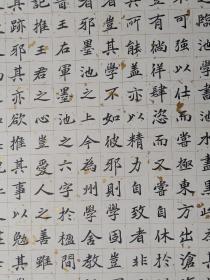 可強以仕而嘗極東方出滄
豈有徜徉肆恣而又嘗自休於
其所能蓋亦以精力自致者非
者豈其學不如彼邪則學固豈
者邪墨池之上今為州學舍教
王右軍墨池之六字於楹間
記推王君之心豈愛人之善雖
其跡邪其亦欲推其事以勉其